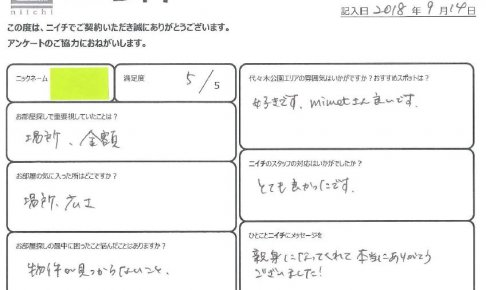 niichi
記入日 2018 年 9 月 14 日
この度は、ニイチでご契約いただき誠にありがとうございます。
アンケートのご協力におねがいします。
ニックネーム
満足度
5/5
お部屋探しで重要視していたことは?
場所、金額
お部屋の気に入った所はどこですか?
場所、広さ
お部屋探しの最中に困ったこと悩んだことはありますか?
物件が見つからないこと、
代々木公園エリアの雰囲気はいかがですか?おすすめスポットは?
好きです。mimetさん良いです。
ニイチのスタッフの対応はいかがでしたか?
とても良かったです。
ひとことニイチにメッセージを
親身になってくれて本当にありがとう
ございました!